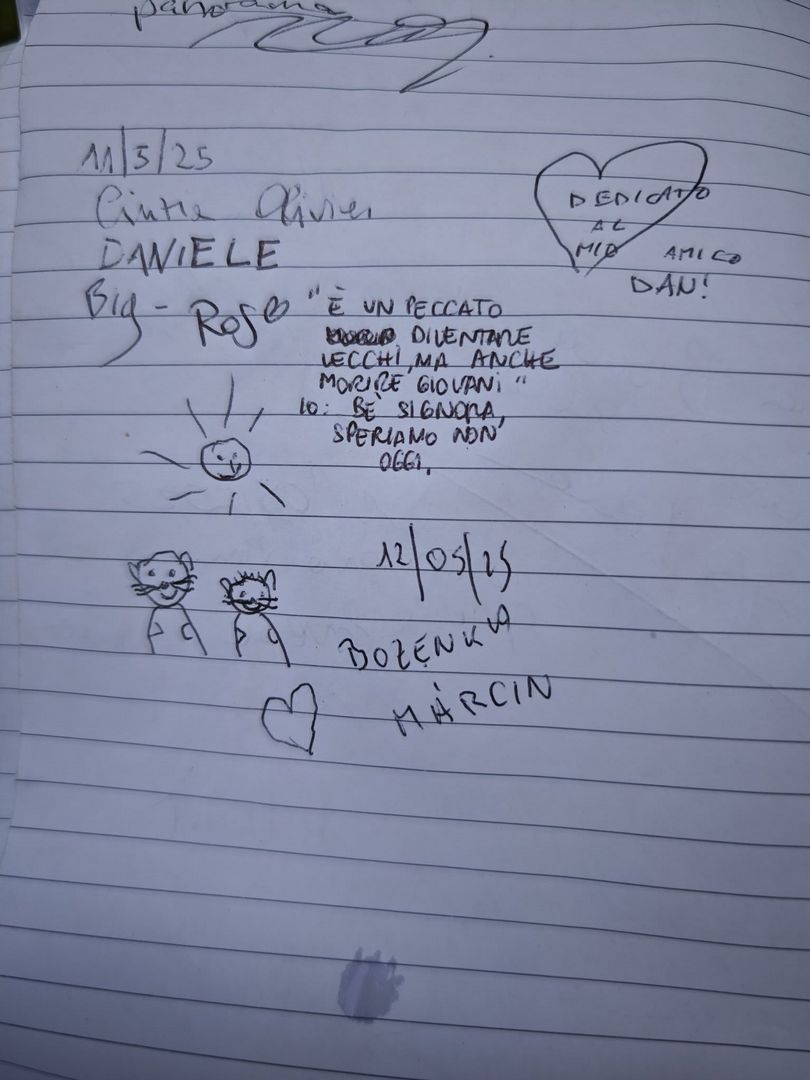 panorama
11/5/25
Cintia Olivier
DANIELE
Big - Rose
DEDICATO
AL
MIO AMICO
DAN!
"È UN PECCATO
DIVENTARE
VECCHI, MA ANCHE
MORIRE GIOVANI"
IO: BÈ SIGNORA,
SPERIAMO NON
OGGI.
12/05/25
BOŻENKA
MARCIN